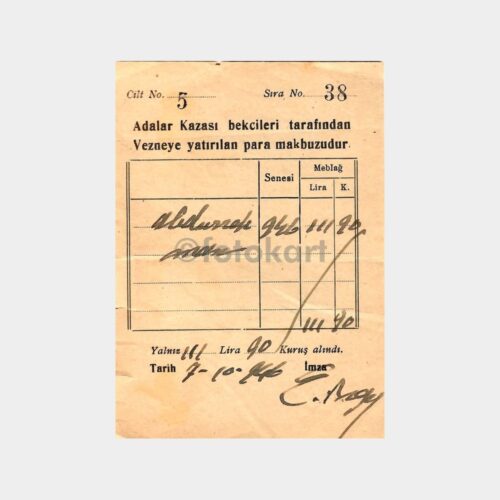 Cilt No. 5 Sıra No. 38
Adalar Kazası bekçileri tarafından
Vezneye yatırılan para makbuzudur.
Senesi Meblağ
Lira K.
946 111 90
©fotokart
111 90
Yalnız 111 Lira 90 Kuruş alındı.
Tarih 7-10-946 İmza